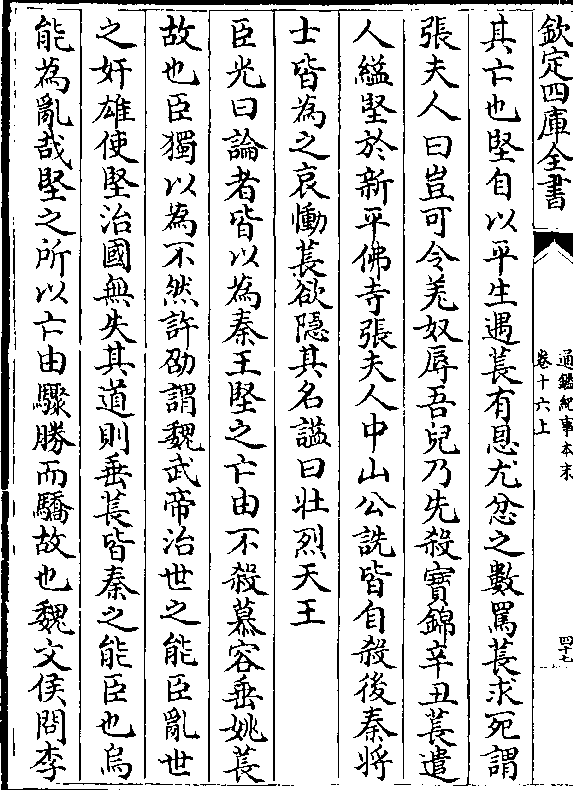 欽定四庫全書
通鑑紀事本末
卷十六上
四十七
其亡也堅自以平生遇萇有恩尤忿之數罵萇求死謂
張夫人曰豈可令羌奴辱吾兒乃先殺寶錦辛丑萇遣
人縊堅於新平佛寺張夫人中山公詵皆自殺後秦將
士皆為之哀慟萇欲隱其名諡曰壯烈天王
臣光曰論者皆以為秦王堅之亡由不殺慕容垂姚萇
故也臣獨以為不然許劭謂魏武帝治世之能臣亂世
之奸雄使堅治國無失其道則垂萇皆秦之能臣也烏
能為亂哉堅之所以亡由驟勝而驕故也魏文侯問李